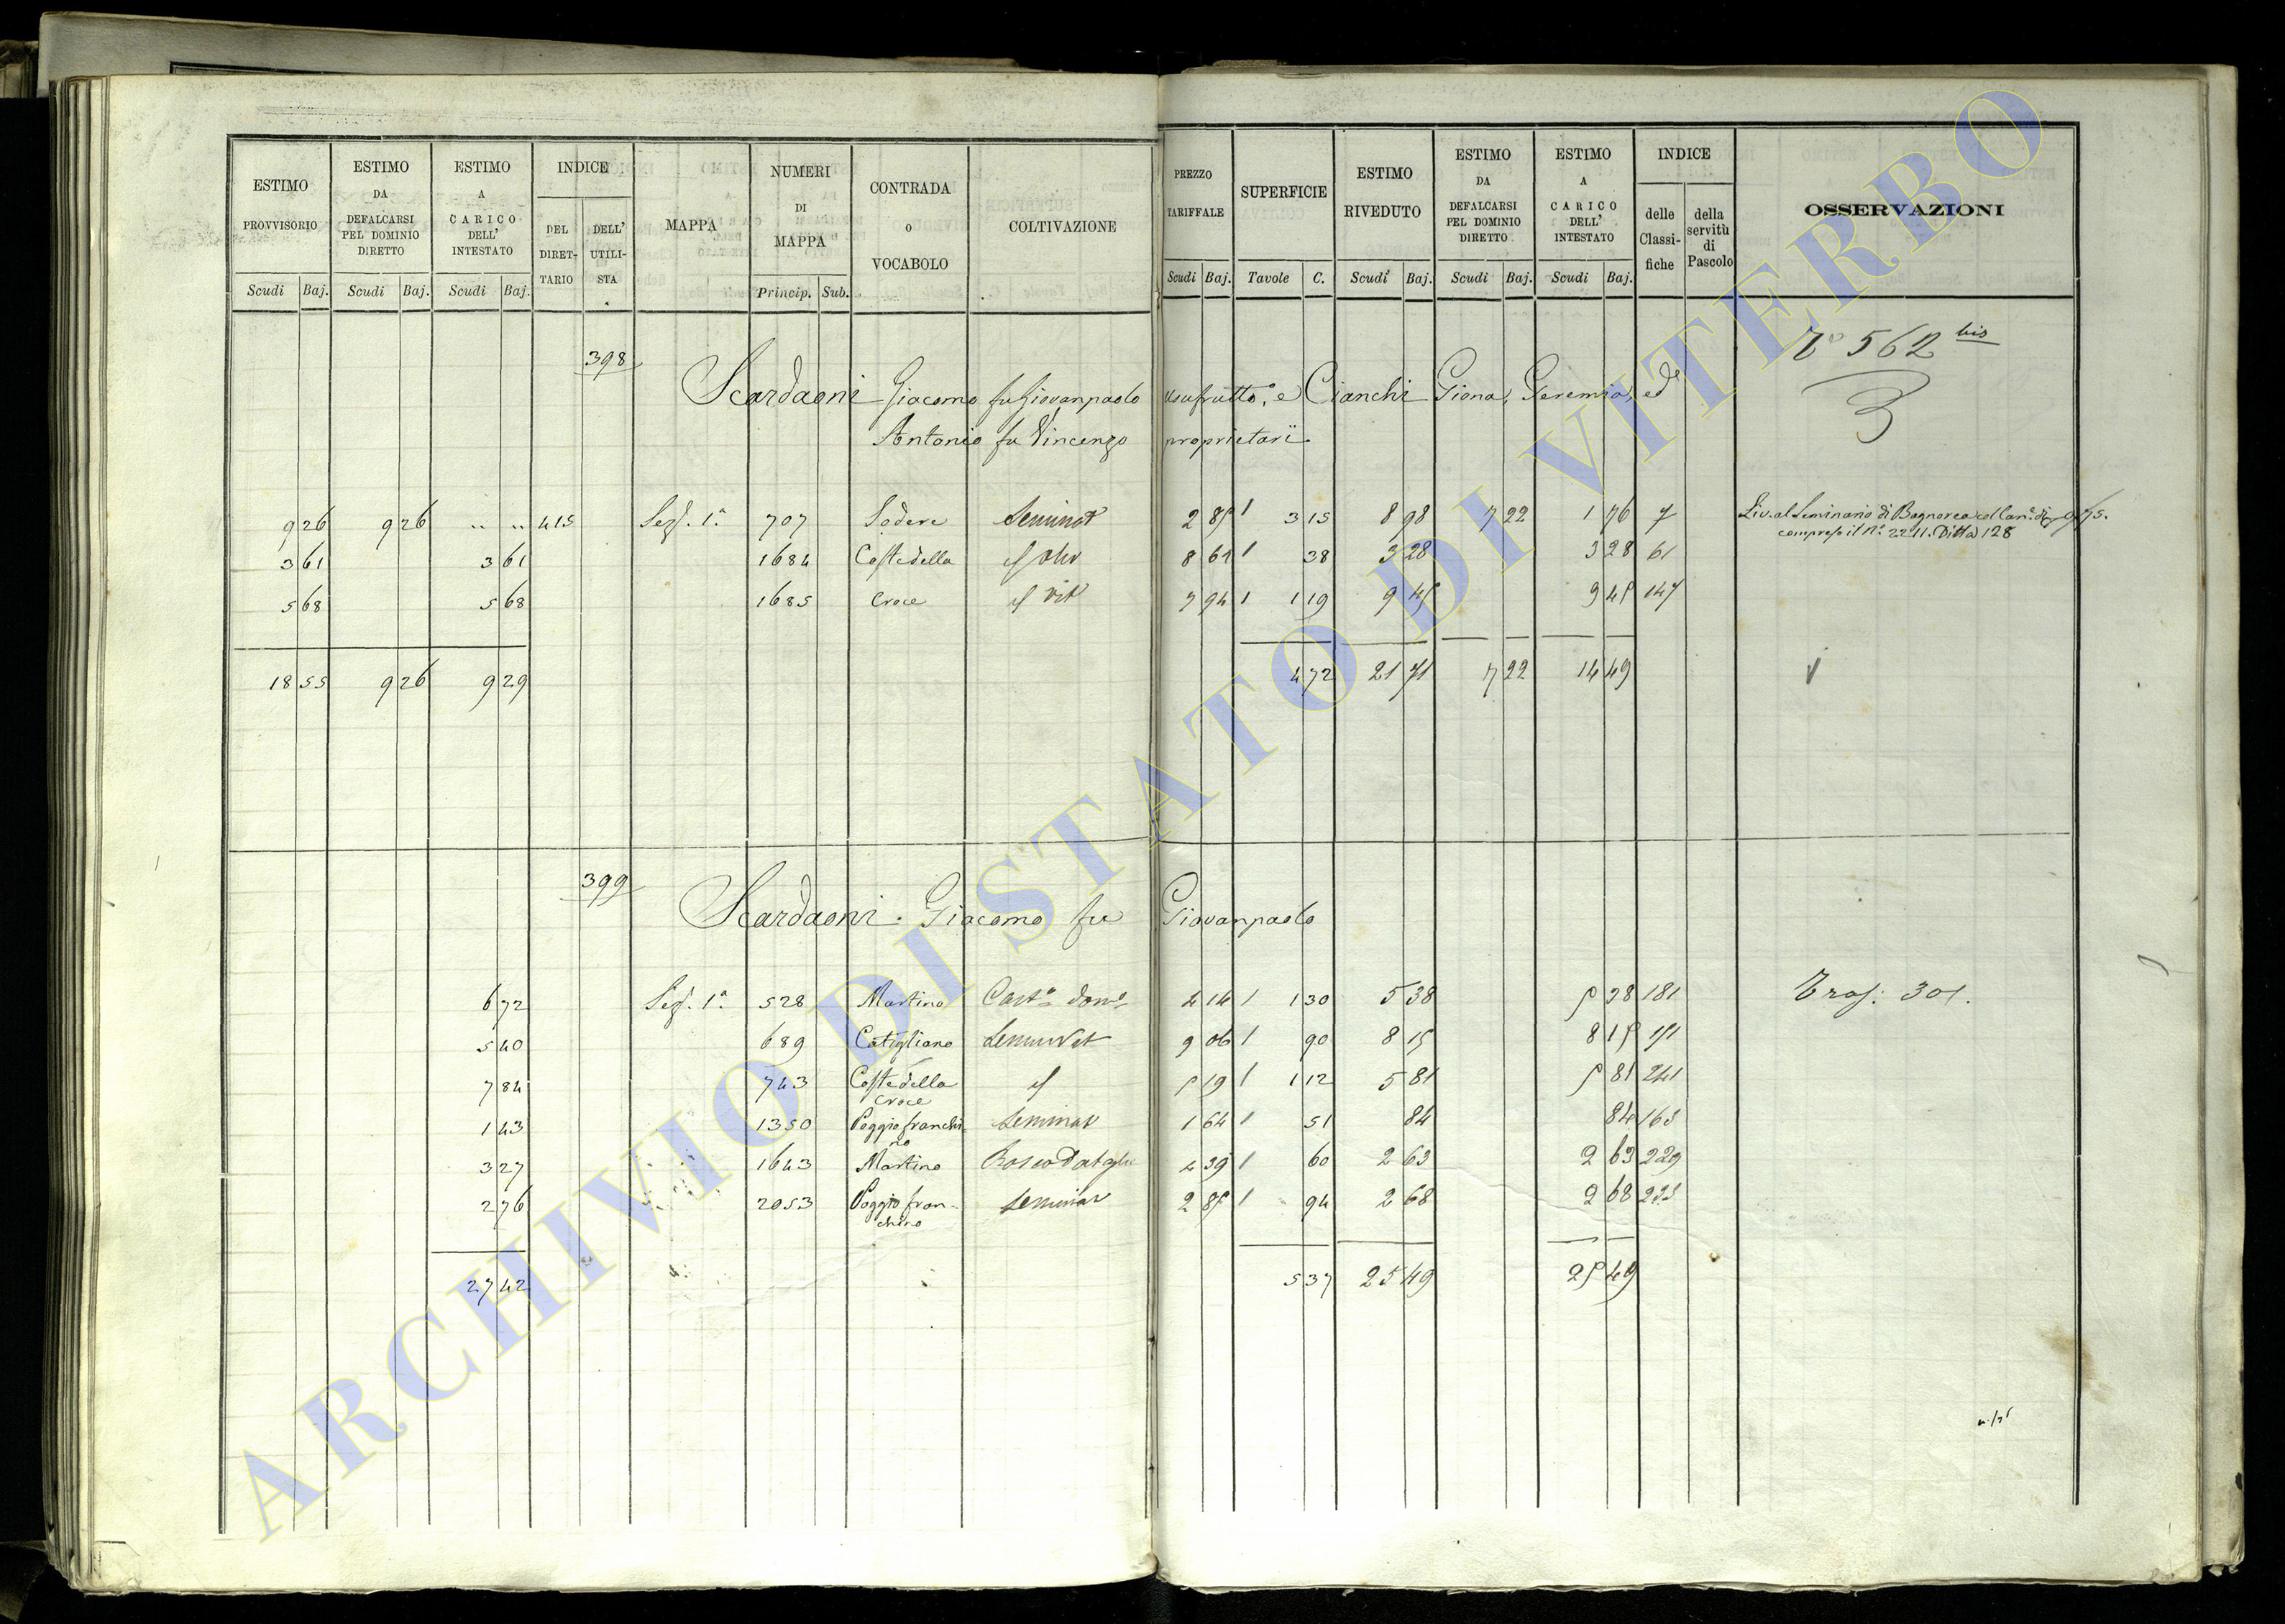 ESTIMO PROVVISORIO
ESTIMO DA DEFALCARSI PEL DOMINIO DIRETTO
ESTIMO A CARICO DELL' INTESTATO
INDICE
DEL DIRET-TARIO
DELL' UTILI-STA
MAPPA
NUMERI DI MAPPA
CONTRADA o VOCABOLO
COLTIVAZIONE
PREZZO TARIFFALE
SUPERFICIE
ESTIMO RIVEDUTO
ESTIMO DA DEFALCARSI PEL DOMINIO DIRETTO
ESTIMO A CARICO DELL' INTESTATO
INDICE
delle Classi-fiche
della servitù di Pascolo
OSSERVAZIONI
Scudi Baj. Scudi Baj. Scudi Baj. Princip. Sub. Scudi Baj. Tavole C. Scudi Baj. Scudi Baj. Scudi Baj.
398 562 bis
Scardaoni Giacomo fu Giovanpaolo usufrutto, e Cianchi Giona, Geremia, ed
3
Antonio fu Vincenzo proprietarii.
9 26 9 26 " " 415 Sez. 1ª 707 Sodere Seminat 2 85 1 3 15 8 98 7 22 1 76 7 Liv. al Seminario di Bagnorea coll'an. di 0/75.
compreso il Nº 2211. Ditta 128
3 61 3 61 1684 Costedella oliv 8 61 1 38 3 28 3 28 61
5 68 5 68 1685 Croce vit 7 94 1 1 19 9 45 9 45 147
18 55 9 26 9 29 4 72 21 71 7 22 14 49
399
Scardaoni Giacomo fu Giovanpaolo
6 72 Sez. 1ª 528 Martino Casto dom 4 14 1 1 30 5 38 5 38 181 Tras. 301.
5 40 689 Catigliano 9 06 1 90 8 15 8 15 151
7 84 743 Costedella Croce 5 19 1 1 12 5 81 5 81 241
1 43 1350 Poggiofranchino Seminat 1 64 1 51 84 84 163
3 27 1643 Martino Bosco 4 39 1 60 2 63 2 63 229
2 76 2053 Poggio fran-chino Seminat 2 85 1 94 2 68 2 68 233
27 42 5 37 25 49 25 49
ARCHIVIO DI STATO DI VITERBO